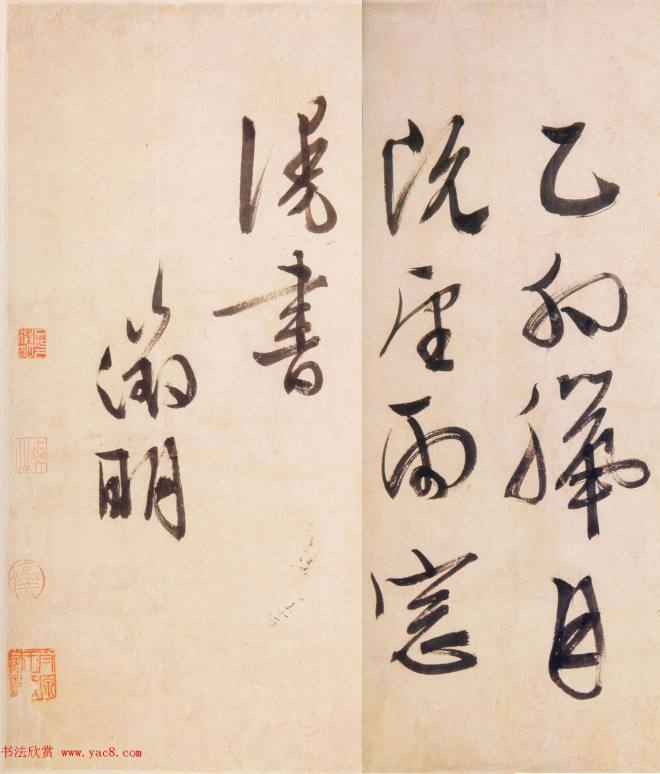 乙卯臘月
既望雨窓
漫書
徵明
书法欣赏 www.yac8.com